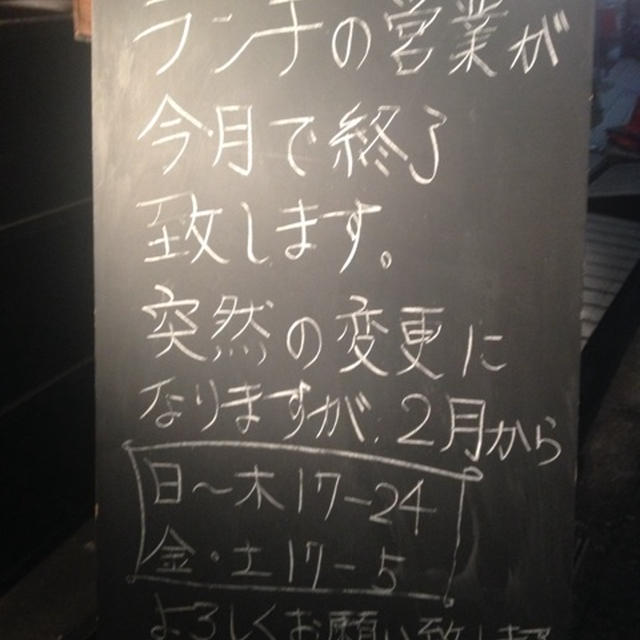 ランチの営業が
今月で終了
致します。
突然の変更に
なりますが、2月から
日～木17-24
金・土17-5
よろしくお願い致します